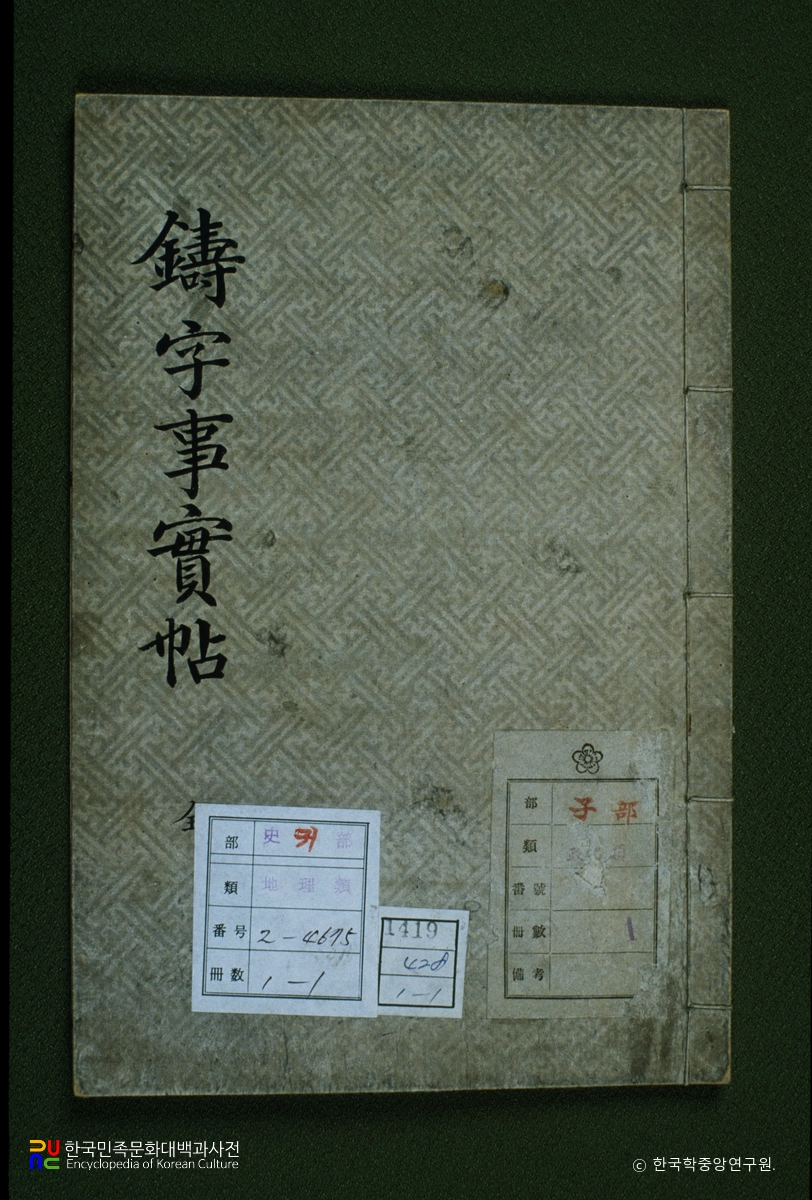 鑄字事實帖
部 史 部
類 地理類
番号 2-4675
冊数 1-1
1419
428
1-1
部 子部
類
番號
冊數 1
備考
한국민족문화대백과사전
Encyclopedia of Korean Culture
© 한국학중앙연구원.